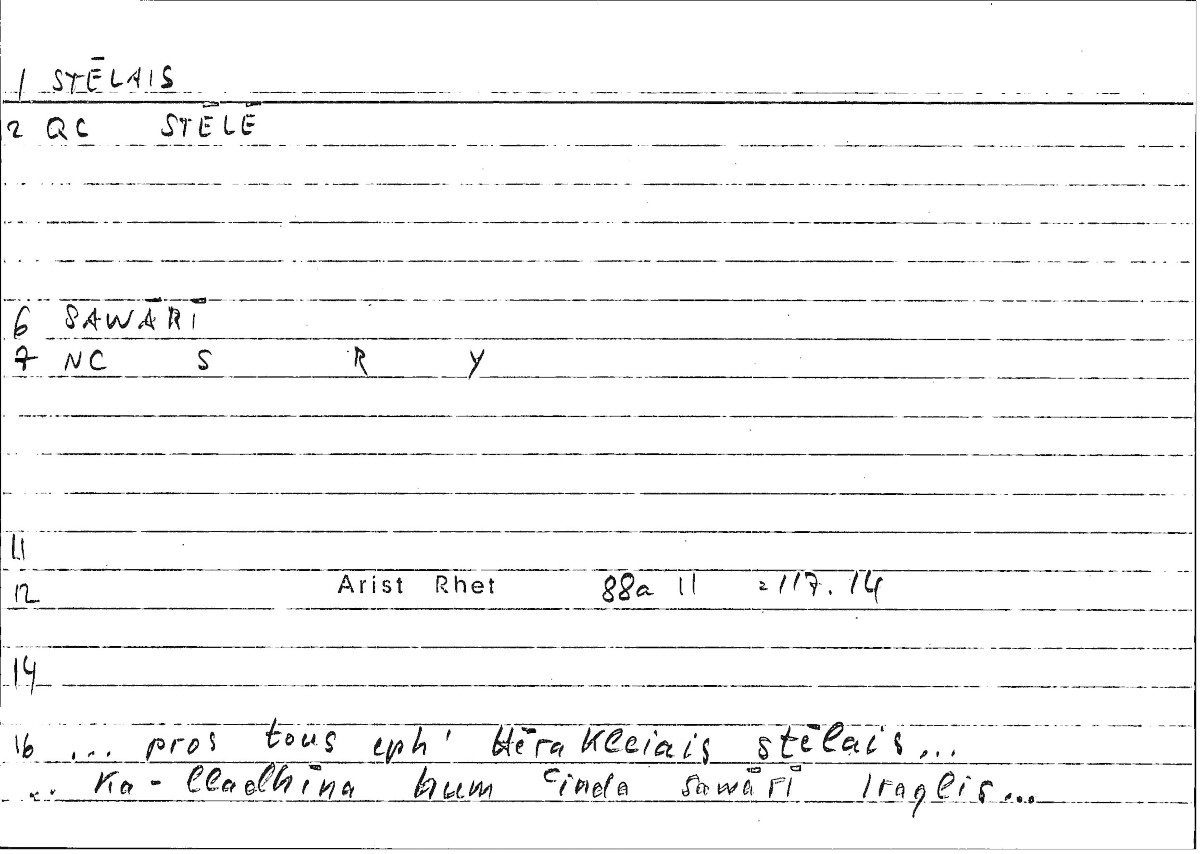 1 STĒLAIS
2 QC STĒLĒ
6 SAWĀRĪ
7 NC S R Y
11
12 Arist Rhet 88a 11 = 117.14
14
16 ... pros tous eph' Hērakleiais stēlais...
.. Ka-lladhīna hum ʿinda sawārī Iraqlis...